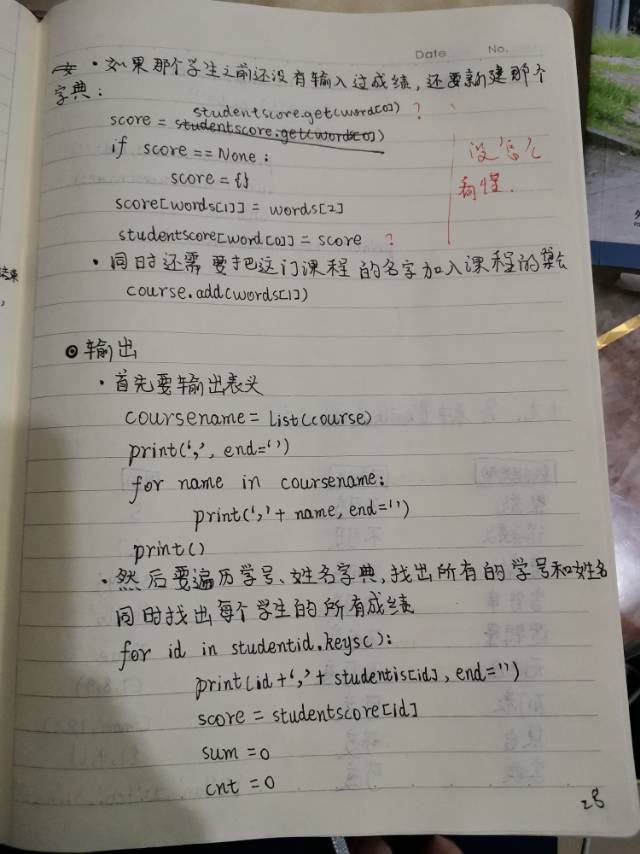 Date No.
·如果那个学生之前还没有输入过成绩,还要新建那个
字典:
studentscore.get(word[0]) ?
score = studentscore.get(words[0])
if score == None:
score = {}
没怎么
看懂.
score[words[1]] = words[2]
studentscore[word[0]] = score ?
·同时还需要把这门课程的名字加入课程的集合
course.add(words[1])
⊙输出
·首先要输出表头
coursename = List(course)
print(',', end='')
for name in coursename:
print(','+ name, end='')
print()
·然后要遍历学号、姓名字典,找出所有的学号和姓名
同时找出每个学生的所有成绩
for id in studentid.keys():
print(id+','+ studentis[id], end='')
score = studentscore[id]
sum = 0
cnt = 0
28